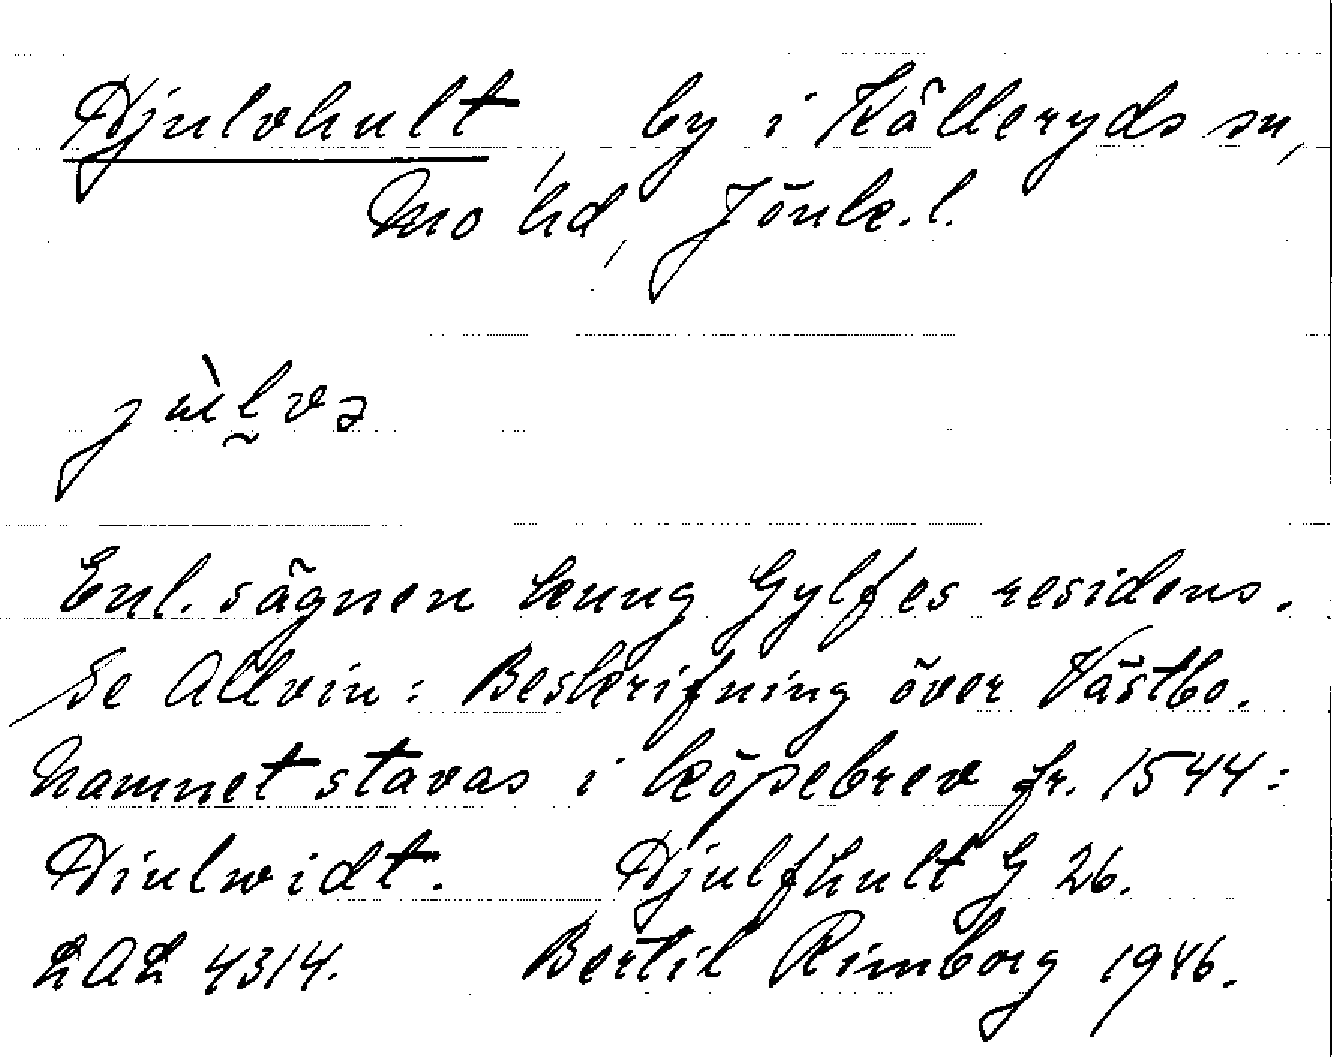 Hjulvhult, by i Kålleryds sn,
Mo hd, Jönk.l.
jùl̰və
Enl. sägnen kung Gylfes residens.
Se Allvin: Beskrifning över Västbo.
Namnet stavas i köpebrev fr. 1544:
Hiulwidt. Hjulfhult G 26.
LAL 4314. Bertil Rimborg 1946.